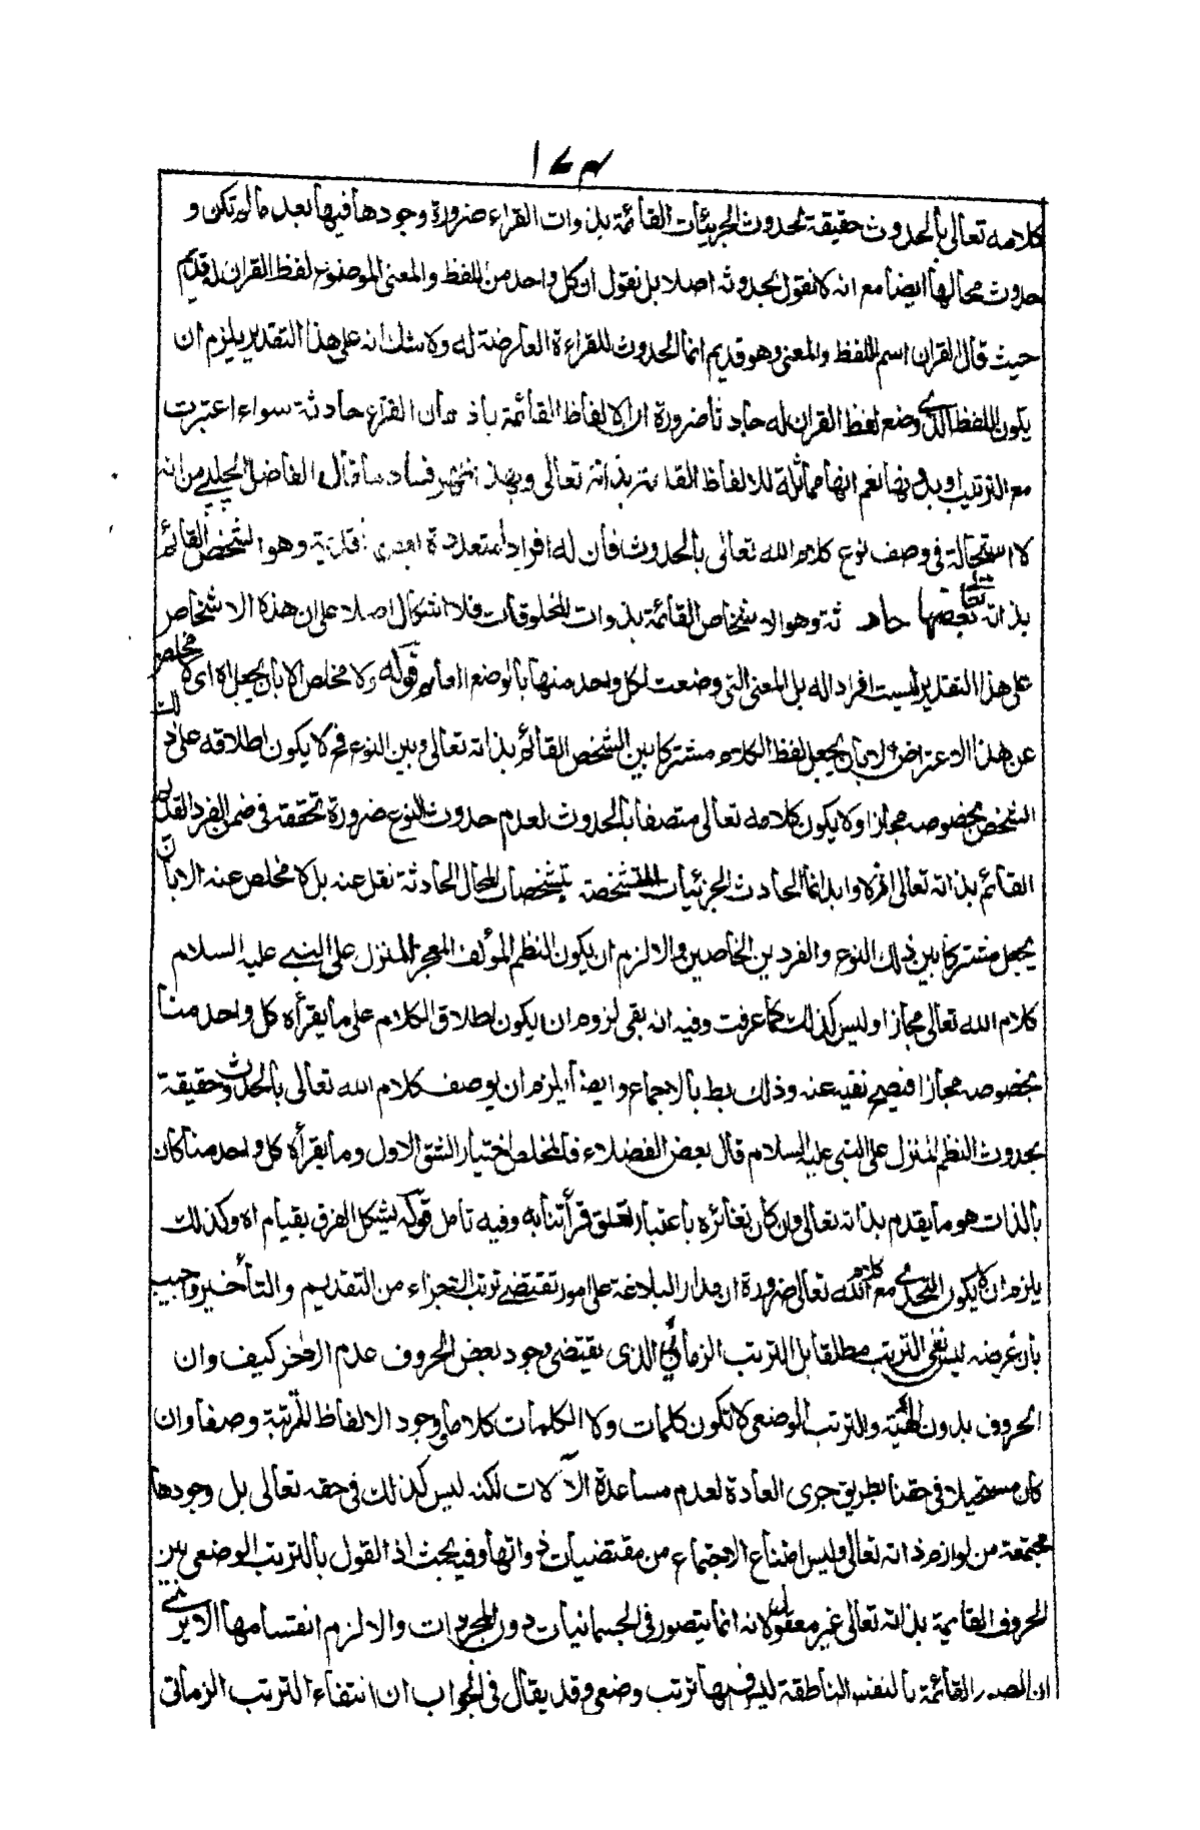 ١٧٣
كلامه تعالى بالحدوث حقيقة لحدوث الجزئيات القائمة بذوات القراء ضرورة وجودها فيها بعد ما لم تكن و
حدوث محالها ايضا مع انه لا نقول بحدوثه اصلا بل نقول ان كل واحد من اللفظ والمعنى الموضوع لفظ القران له قديم
حيث قال القران اسم للفظ والمعنى وهو قديم انما الحدوث للقراءة العارضة له ولا شك انه على هذا التقدير يلزم ان
يكون اللفظ الذي وضع لفظ القران له حادثا ضرورة ان الالفاظ القائمة باذهان القراء حادثة سواء اعتبرت
مع الترتيب او بدونها نعم انها مماثلة للالفاظ القائمة بذاته تعالى وبهذا ظهر فساد ما قال الفاضل الچلپي من انه
لا استحالة في وصف نوع كلام الله تعالى بالحدوث فان له افرادا متعددة بعضها قديمة وهو الشخص القائم
بذاته تعالى وبعضها حادثة وهو الاشخاص القائمة بذوات المخلوقات فلا اشكال اصلا على ان هذه الاشخاص
على هذا التقدير ليست افراد اله بل المعنى التي وضعت لكل واحد منها بالوضع العام قوله ولا مخلص الا بان يجعل اه اى لا مخلص
عن هذا الاعتراض الا بان يجعل لفظ الكلام مشتركا بين الشخص القائم بذاته تعالى وبين النوع فح لا يكون اطلاقه على ذلك
الشخص بخصوصه مجازا ولا يكون كلامه تعالى متصفا بالحدوث لعدم حدوث النوع ضرورة تحققه في ضمن الفرد القديم
القائم بذاته تعالى ازلا وابدا انما الحادث الجزئيات المتشخصة بتشخصات المحال الحادثة نقل عنه بل لا مخلص عنه الا بان
يجعل مشتركا بين ذلك النوع والفردين الخاصين والا لزم ان يكون النظم المؤلف المعجز المنزل على النبي عليه السلام
كلام الله تعالى مجازا وليس كذلك كما عرفت وفيه انه بقى لزوم ان يكون اطلاق الكلام على ما يقرأه كل واحد منا
بخصوصه مجازا فيصح نفيه عنه وذلك بط بالاجماع وايضا يلزم ان يوصف كلام الله تعالى بالحدوث حقيقة
بحدوث النظم المنزل على النبي عليه السلام قال بعض الفضلاء فالمخلص اختيار الشق الاول وما يقرأه كل واحد منا كان
بالذات هو ما يقدم بذاته تعالى وان كان تغائره باعتبار تعلق قرأتنا به وفيه تامل قوله يشكل الفرق بقيام اه وكذلك
يلزم ان لا يكون التحدي مع كلام الله تعالى ضرورة ان مدار البلاغة على امور تقتضي ترتب التجزاء من التقديم والتأخير واجيب
بان غرضه ليس نفى الترتب مطلقا بل الترتب الزماني الذى يقتضى وجود بعض الحروف عدم الاخر كيف وان
الحروف بدون الهيئة والترتب الوضعى لا تكون كلمات ولا الكلمات كلاما ووجود الالفاظ المرتبة وصفا وان
كان مستحيلا في حقنا بطريق جرى العادة لعدم مساعدة الآلات لكنه ليس كذلك في حقه تعالى بل وجودها
مجتمعة من لوازم ذاته تعالى وليس امتناع الاجتماع من مقتضيات ذواتها وفيه بحث اذ القول بالترتب الوضعى بين
الحروف القائمة بذاته تعالى غير معقول لانه انما يتصور في الجسمانيات دون المجردات والا لزم انقسامها الا يرى
ان الصور القائمة بالنفس الناطقة ليس فيها ترتب وضعى وقد يقال في الجواب ان انتفاء الترتب الزمانى